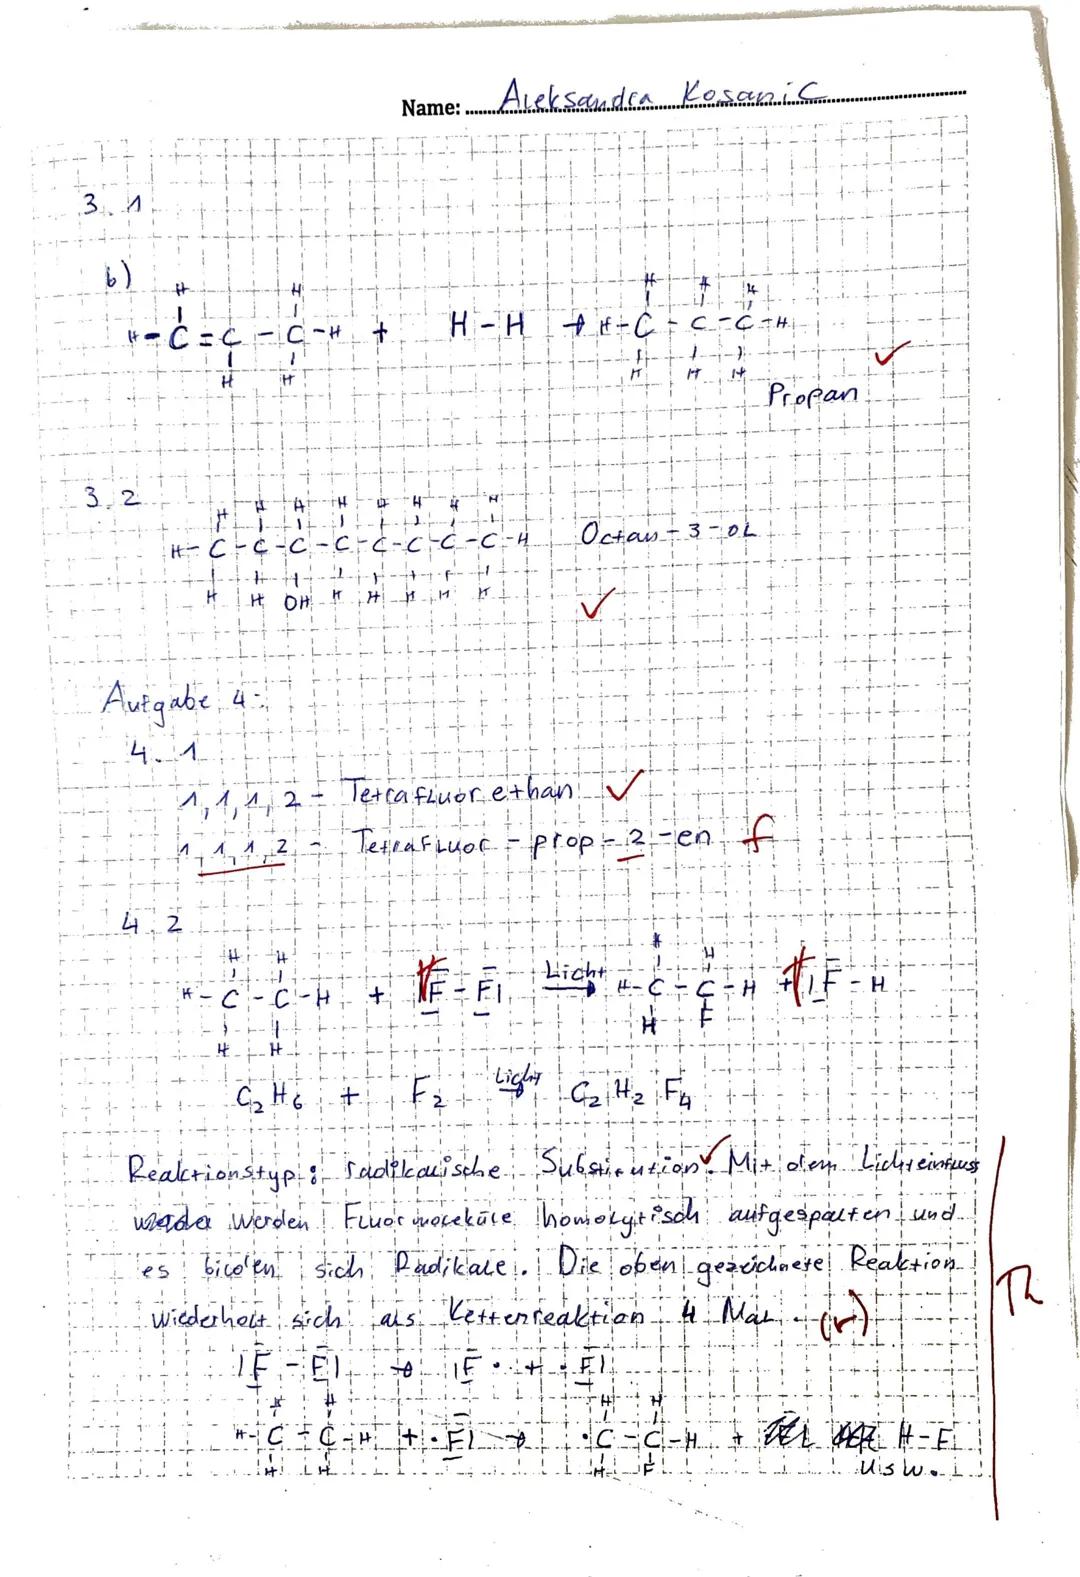 Name: Aleksandra Kosanic
3.1
b)
H H H H H
H-C=C-C-H + H-H → H-C-C-C-H
H H H H H
Propan
3.2
H H H H H H H H
H-C-C-C-C-C-C-C-C-H Octan-3-OL
H H OH H H H H H
Aufgabe 4:
4.1
1,1,1,2 - Tetrafluorethan
1,1,1,2 - Tetrafluor-prop-2-en f
4.2
H H H H
H-C-C-H + |F-F| Licht → H-C-C-H + |F-H
H H H F
C2H6 + F2 Licht → C2H2F4
Reaktionstyp: radikalische Substitution. Mit dem Lichteinfluss
werden Fluormoleküle homolytisch aufgespalten und
es bilden sich Radikale. Die oben gezeichnete Reaktion
wiederholt sich als Kettenreaktion 4 Mal. (r)
|F-F| → |F· + ·F|
H H H H
H-C-C-H + ·F| → ·C-C-H + H-F
H H H F usw.